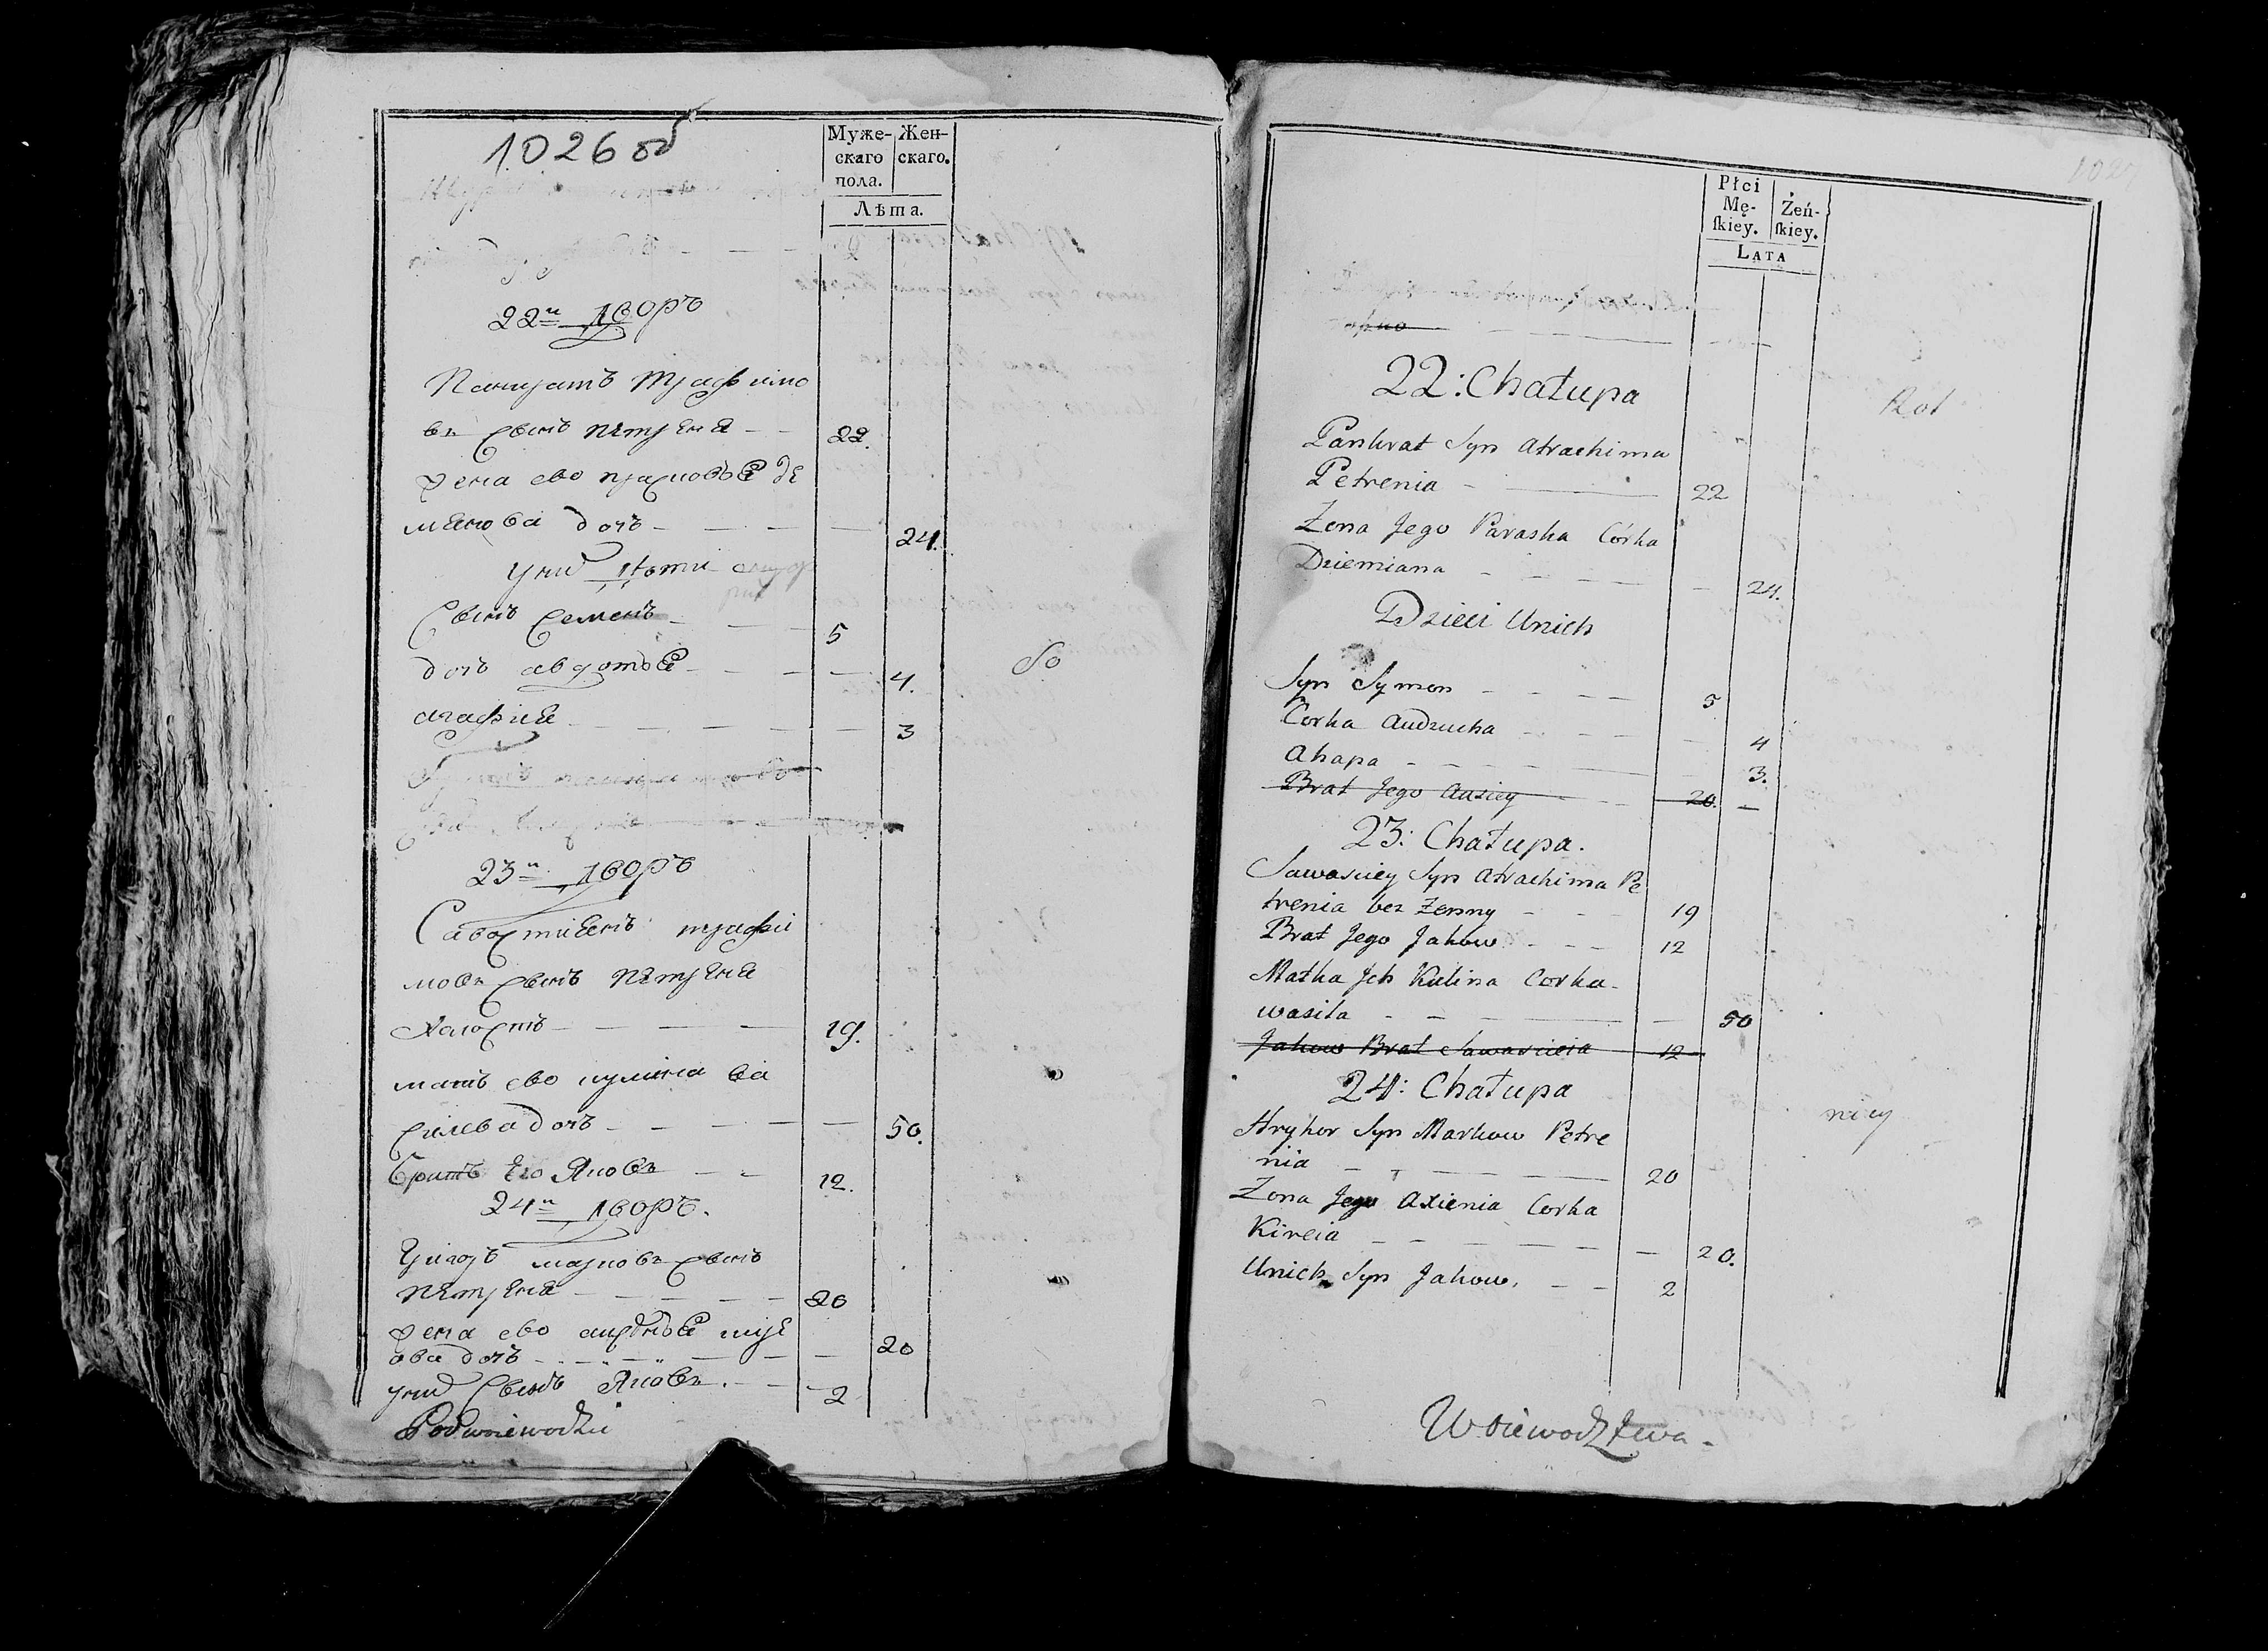 1026 об
Муже-
скаго
пола.
Жен-
скаго.
Лѣта.
22й дворъ
Панкратъ Трафимо
въ сынъ петреня 22.
жена ево прасковья де
мянова дочь 24.
у них дети
Сынъ Семенъ 5
дочь авдотья 4.
агафия 3
So
23й дворъ
Савостиянъ трафи
мовъ сынъ петреня
холостъ 19.
мать ево кулина ва
силева дочь 50.
братъ Его Яковъ 12.
24й дворъ.
Григоръ марковъ сынъ
петреня 20
жена ево аксинья кире
ева дочь 20
у них сынъ Яковъ. 2
Podwoiewodzii
1027
Płci
Mę-
ſkiey.
Żeń-
ſkiey.
Lata
22: Chałupa
Rot
Pankrat Syn Atrachima
Petrenia 22
Zona Jego Paraska Córka
Dziemiana 24.
Dzieci Unich
Syn Symon 5
Corka Audzucha 4
Ahapa 3.
Brat Jego Ausiey 20.
23: Chałupa.
Sawasciey Syn Atrachima Pe
trenia bez Zenny 19
Brat Jego Jakow 12
Matka Jch Kulina Corka
wasila 50
Jakow Brat Sawascieia 12
24: Chałupa
niey
Hryhor Syn Markow Petre
nia 20
Zona Jego Axienia Corka
Kireia 20.
Unich Syn Jakow. 2
Woiewodztwa.